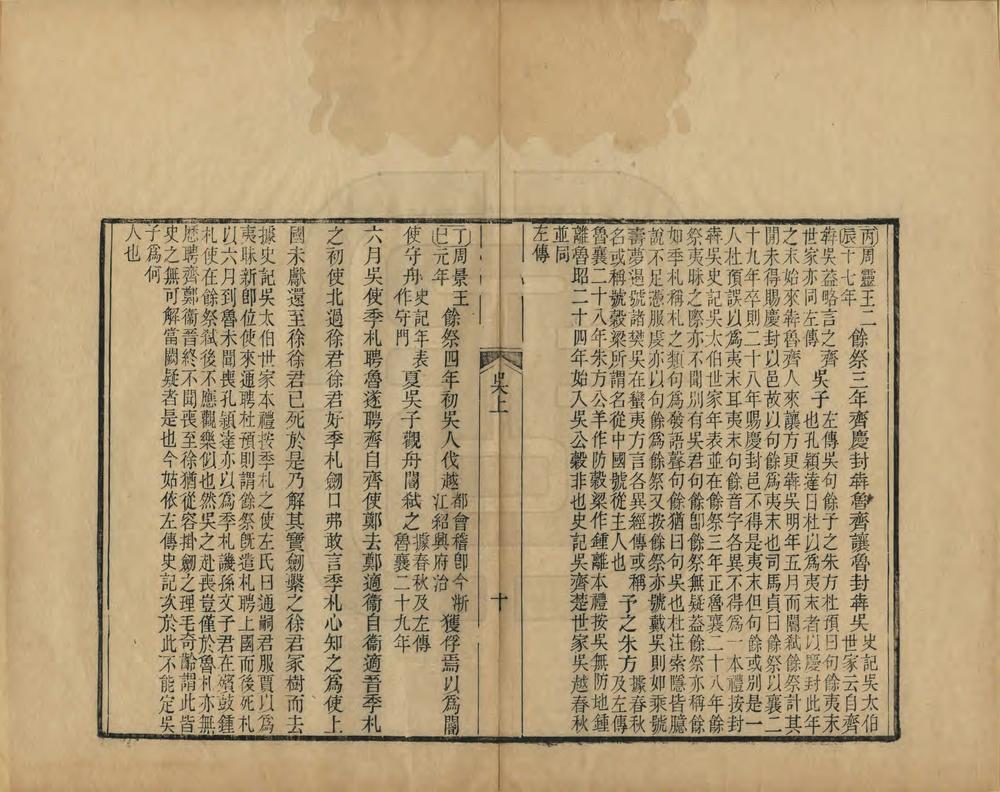 丙辰周靈王二十七年　餘祭三年齊慶封犇魯齊讓魯封犇吳史記吳太伯世家云自齊
犇吳蓋略言之齊世家亦同左傳　吳子左傳吳句餘予之朱方杜預曰句餘夷末也孔穎達曰杜以爲夷末者以慶封此年
之末始來犇魯齊人來讓方更犇吳明年五月而閽弒餘祭計其
閒未得賜慶封以邑故以句餘爲夷末也司馬貞曰餘祭以襄二
十九年卒則二十八年賜慶封邑不得是夷末但句餘或別是一
人杜預誤以爲夷末耳夷末句餘音字各異不得爲一本禮按封
犇吳史記吳太伯世家年表並在餘祭三年正魯襄二十八年餘
祭夷昧之際亦不聞別有吳君句餘卽餘祭無疑蓋餘祭亦稱餘
如季札稱札之類句爲發語聲句餘猶曰句吳也杜注索隱皆臆
說不足憑服虔亦以句餘爲餘祭又按餘祭亦號戴吳則如乘號
壽夢遏號諸樊吳在蠻夷方言各異經傳或稱名或稱號穀梁所謂名從中國號從主人也　予之朱方據春秋及左傳
魯襄二十八年朱方公羊作防穀梁作鍾離本禮按吳無防地鍾
離魯昭二十四年始入吳公穀非也史記吳齊楚世家吳越春秋
並同
左傳
吳上
十
丁巳周景王元年　餘祭四年初吳人伐越都會稽卽今浙江紹興府治　獲俘焉以爲閽
使守舟史記年表作守門　夏吳子觀舟閽弒之據春秋及左傳魯襄二十九年
六月吳使季札聘魯遂聘齊自齊使鄭去鄭適衞自衞適晉季札
之初使北過徐君徐君好季札劒口弗敢言季札心知之爲使上
國未獻還至徐徐君已死於是乃解其寶劒繫之徐君冢樹而去
據史記吳太伯世家本禮按季札之使左氏曰通嗣君服賈以爲
夷昧新卽位使來通聘杜預則謂餘祭旣遣札聘上國而後死札
以六月到魯未聞喪孔穎達亦以爲季札譏孫文子君在殯鼓鍾
札使在餘祭弒後不應觀樂似也然吳之赴喪豈僅於魯札亦無
歷聘齊鄭衞晉終不聞喪至徐猶從容掛劒之理毛奇齡謂此皆
史之無可解當闕疑者是也今姑依左傳史記次於此不能定吳
子爲何
人也